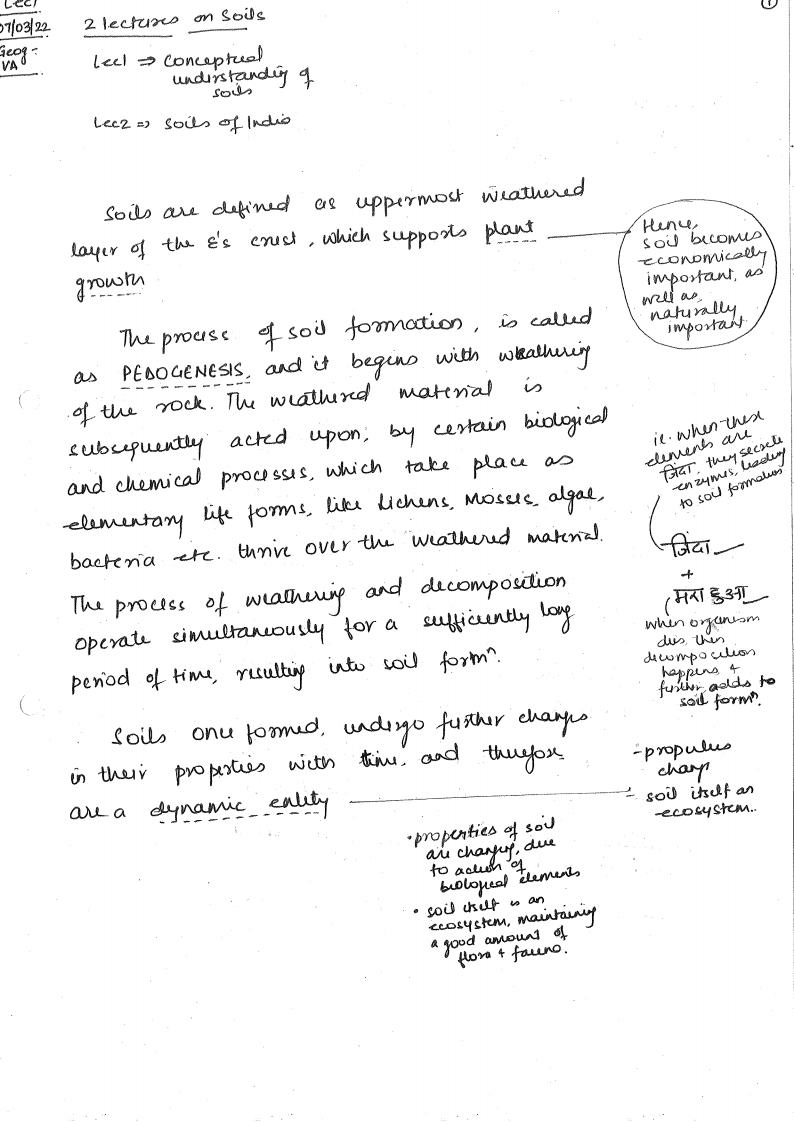 Lec1
07/03/22
Geog-
VA
①
2 lectures on Soils
Lec1 ⇒ Conceptual
understanding of
soils
Lec2 ⇒ Soils of India
Soils are defined as uppermost weathered
layer of the E's crust, which supports plant
growth
Hence,
soil becomes
economically
important, as
well as,
naturally
important
The process of soil formation, is called
as PEDOGENESIS, and it begins with weathering
of the rock. The weathered material is
subsequently acted upon, by certain biological
and chemical processes, which take place as
elementary life forms, like Lichens, Mosses, algae,
bacteria etc. thrive over the weathered material.
The process of weathering and decomposition
operate simultaneously for a sufficiently long
period of time, resulting into soil formⁿ.
ie. when these
elements are
जिंदा, they secrete
enzymes, leading
to soil formation
जिंदा
+
मरा हुआ
when organism
dies, then
decomposition
happens &
further adds to
soil formⁿ.
Soils once formed, undergo further changes
in their properties with time, and therefore
are a dynamic entity
- properties
change
- soil itself an
ecosystem..
• properties of soil
are changing, due
to action of
biological elements
• soil itself is an
ecosystem, maintaining
a good amount of
flora & fauna.